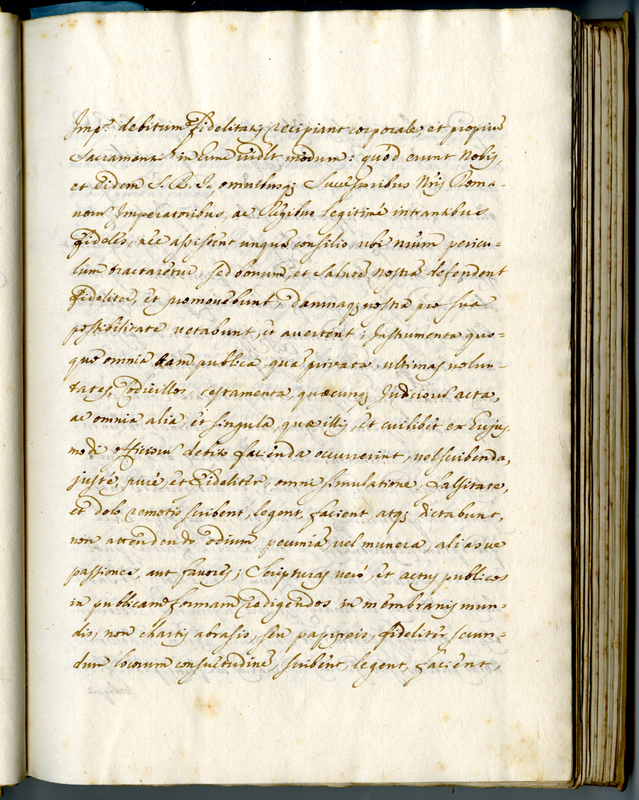 Imp.ⁱ debitum fidelitatis recipiant corporale, et proprium
Sacramentum in hunc modum: quod erunt Nobis,
et eidem S. R. I. omnibusq; Successoribus Nrĩs Roma-
norũ Imperatoribus, ac Regibus legitimè intrantibus
fideles, nec assistent unquã consilio ubi nr̃um pericu-
lum tractaretur, sed bonum, et salutẽ nostrã defendent
fideliter, et promovebunt, damnaq; nostra pro sua
possibilitate vetabunt, et avertent; Instrumenta quo-
que omnia tam publica, quã privata, ultimas volun-
tates, Codicillos, testamenta, quæcunq; Judiciorũ acta,
ac omnia alia, et singula, quæ illis, et cuilibet ex hujus
modi officiorũ debito facienda occurrerint, vel scribenda,
justè, purè et fideliter, omni simulatione, falsitate,
et dolo remotis scribent, legent, facient atq; dictabunt,
non attendendo odium, pecuniã vel munera, aliasve
passiones, aut favores; Scripturas verò, et actus publicos
in publicam formam redigendos in membranis mun-
dis, non chartis abrasis, seu papireis, fideliter secun-
dum locorum consuetudinẽ scribent, legent, facient,